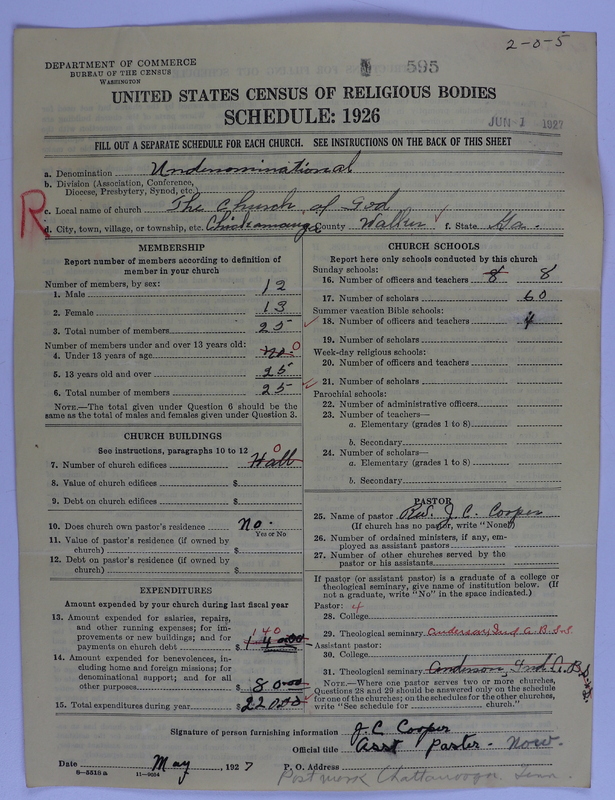 2-0-5
DEPARTMENT OF COMMERCE
BUREAU OF THE CENSUS
WASHINGTON
595
UNITED STATES CENSUS OF RELIGIOUS BODIES
SCHEDULE: 1926
JUN 1 1927
FILL OUT A SEPARATE SCHEDULE FOR EACH CHURCH. SEE INSTRUCTIONS ON THE BACK OF THIS SHEET
a. Denomination Undenominational
b. Division (Association, Conference,
Diocese, Presbytery, Synod, etc.)
R
c. Local name of church The Church of God
d. City, town, village, or township, etc. Chickamauga County Walker f. State Ga.
MEMBERSHIP
Report number of members according to definition of
member in your church
Number of members, by sex:
1. Male 12
2. Female 13
3. Total number of members 25
Number of members under and over 13 years old:
4. Under 13 years of age no. 0
5. 13 years old and over 25
6. Total number of members 25
NOTE.—The total given under Question 6 should be the
same as the total of males and females given under Question 3.
CHURCH BUILDINGS
See instructions, paragraphs 10 to 12
7. Number of church edifices 0
8. Value of church edifices $
9. Debt on church edifices $
10. Does church own pastor's residence no.
Yes or No
11. Value of pastor's residence (if owned by
church) $
12. Debt on pastor's residence (if owned by
church) $
EXPENDITURES
Amount expended by your church during last fiscal year
13. Amount expended for salaries, repairs,
and other running expenses; for im-
provements or new buildings; and for
payments on church debt $ 140
14. Amount expended for benevolences, in-
cluding home and foreign missions; for
denominational support; and for all
other purposes $ 80.00
15. Total expenditures during year $ 220.00
CHURCH SCHOOLS
Report here only schools conducted by this church
Sunday schools:
16. Number of officers and teachers 8 8
17. Number of scholars 60
Summer vacation Bible schools:
18. Number of officers and teachers 4
19. Number of scholars
Week-day religious schools:
20. Number of officers and teachers
21. Number of scholars
Parochial schools:
22. Number of administrative officers
23. Number of teachers—
a. Elementary (grades 1 to 8)
b. Secondary
24. Number of scholars—
a. Elementary (grades 1 to 8)
b. Secondary
PASTOR
25. Name of pastor Rev. J. C. Cooper
(If church has no pastor, write "None")
26. Number of ordained ministers, if any, em-
ployed as assistant pastors
27. Number of other churches served by the
pastor or his assistants
If pastor (or assistant pastor) is a graduate of a college or
theological seminary, give name of institution below. (If
not a graduate, write "No" in the space indicated.)
Pastor: 4
28. College
29. Theological seminary Anderson, Ind A.B.S.
Assistant pastor:
30. College
31. Theological seminary Anderson, Ind. A.B.S.
NOTE.—Where one pastor serves two or more churches,
Questions 28 and 29 should be answered only on the schedule
for one of the churches; on the schedules for the other churches,
write "See schedule for church."
Signature of person furnishing information J. C. Cooper
Official title Asst Paster - Now-
Date May, 1927 P. O. Address
8-5518 a 11-9034 Postmark Chattanooga Tenn.